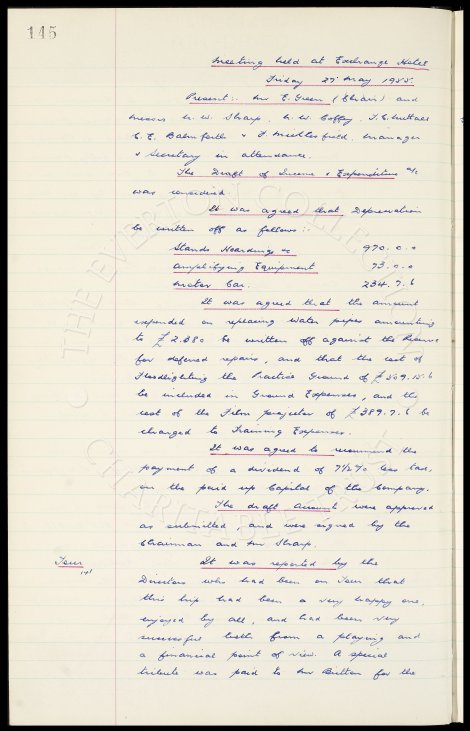 145
Meeting held at Exchange Hotel
Friday 27 May 1955.
Present:. Mr E. Green (Chair) and
Messrs W. W. Sharp, N. W. Coffey, T. C. Nuttall
C. E. Balmforth & F. Micklesfield. Manager
& Secretary in attendance.
The Draft of Income & Expenditure a/c
was considered
It was agreed that Depreciation
be written off as follows:-
Stands Hoardings &c 970. 0. 0
Amplifying Equipment 73. 0. 0
Motor Car. 234. 7. 6
It was agreed that the amount
expended on replacing water pipes amounting
to £2.280 be written off against the Reserve
for deferred repairs, and that the cost of
Floodlighting the Practice Ground of £509.15.6
be included in Ground Expenses, and the
cost of the Film projector of £389.7.6 be
charged to Training Expenses.
It was agreed to recommend the
payment of a dividend of 7½% less tax,
on the paid up Capital of the Company.
The draft Accounts were approved
as submitted, and were signed by the
Chairman and Mr Sharp.
Tour
It was reported by the
Directors who had been on Tour that
this trip had been a very happy one,
enjoyed by all, and had been very
successful both from a playing and
a financial point of view. A special
tribute was paid to Mr Britton for the
THE EVERTON COLLECTION
CHARITABLE